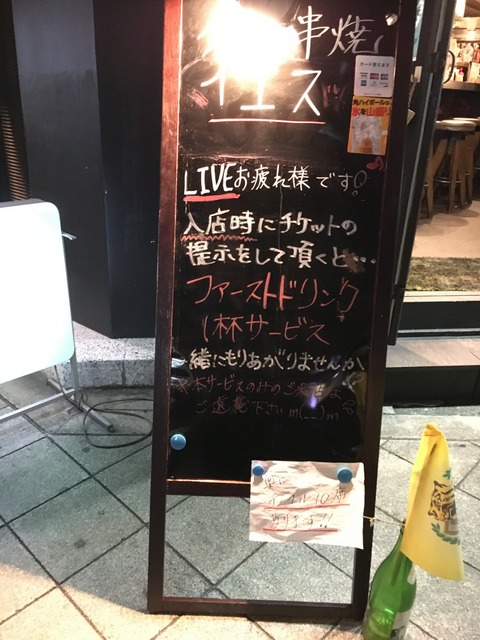 串焼
イエス
カード使えます
LIVEお疲れ様です!
入店時にチケットの
提示をして頂くと…
ファーストドリンク
1杯サービス
一緒にもりあがりませんか
※本サービスのみのご来店は
ご遠慮下さいm(__)m
10
ります!!